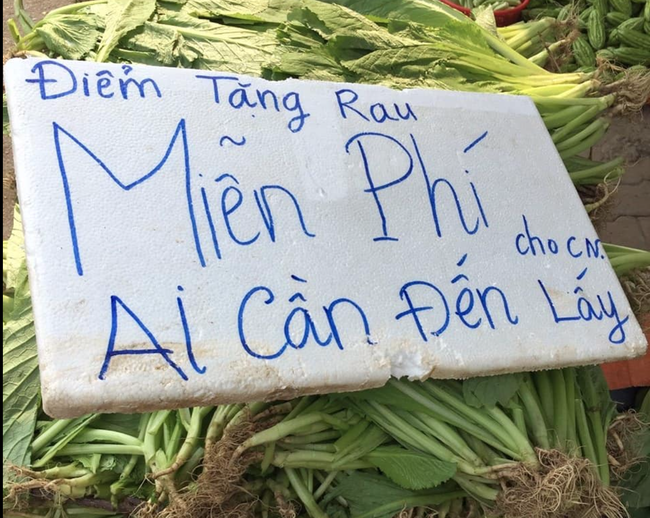 Điểm Tặng Rau
Miễn Phí
cho CN.
Ai Cần Đến Lấy